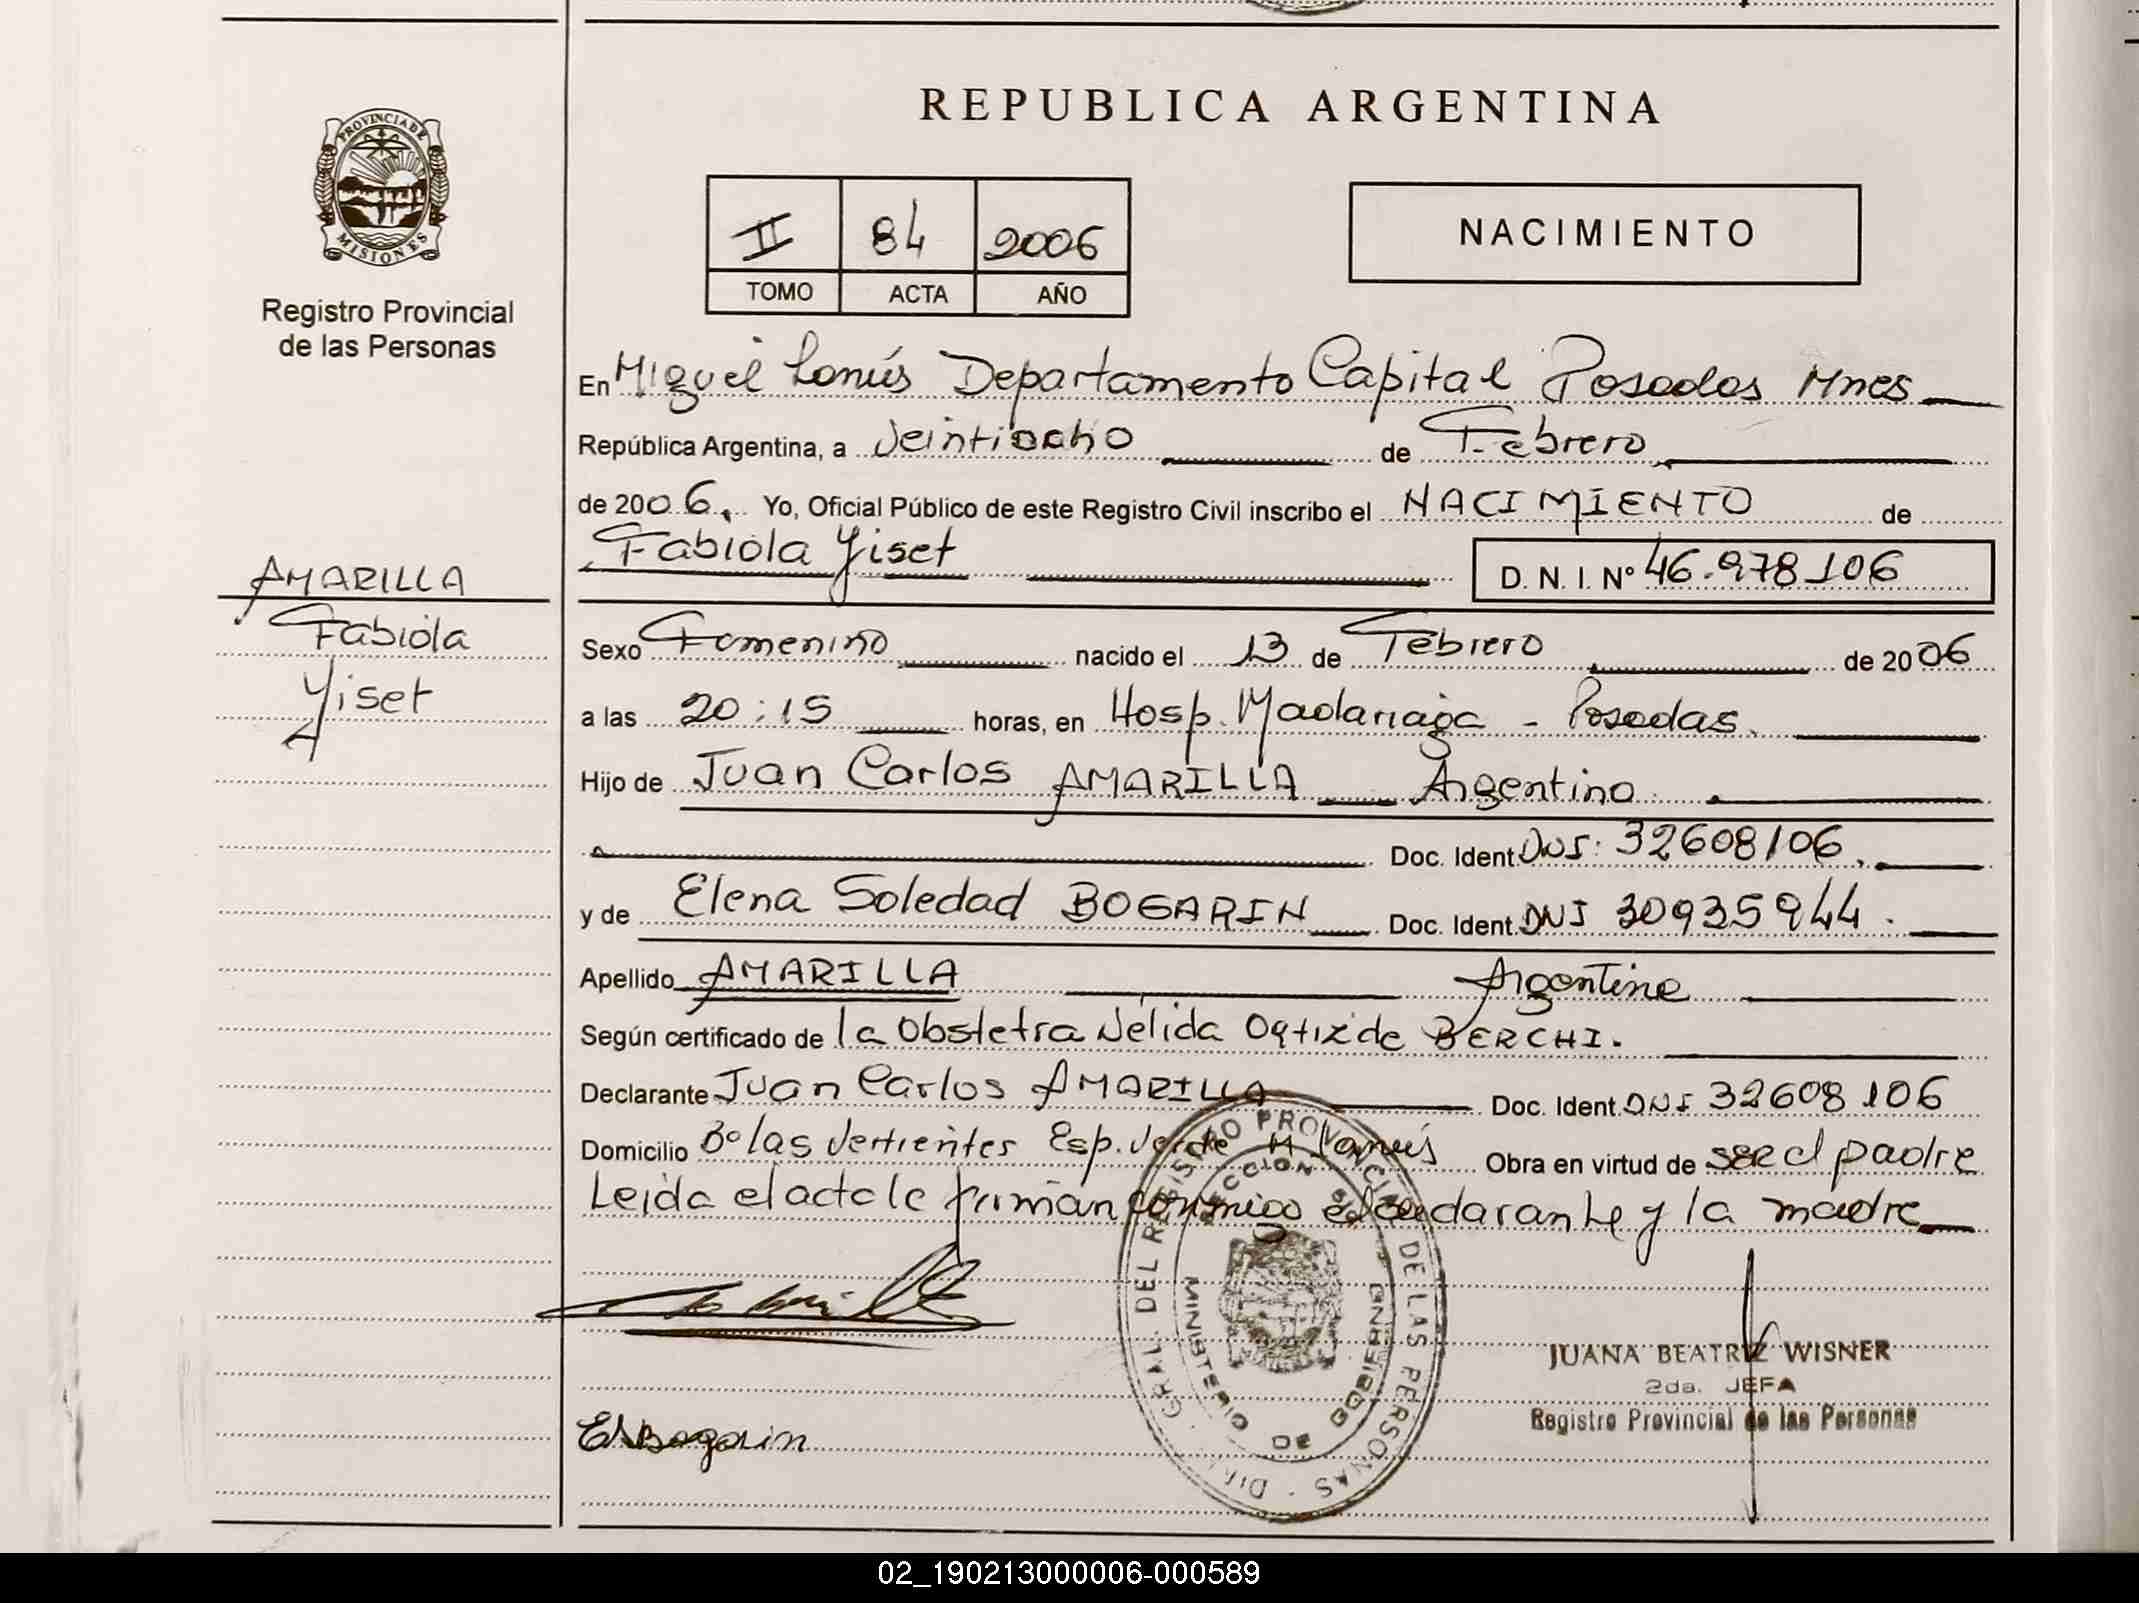 REPUBLICA ARGENTINA
PROVINCIA DE
MISIONES
Registro Provincial
de las Personas
II 84 2006
TOMO ACTA AÑO
NACIMIENTO
En Miguel Lanús Departamento Capital Posadas Mnes
República Argentina, a veintiocho de Febrero
de 2006, Yo, Oficial Público de este Registro Civil inscribo el NACIMIENTO de
Fabiola Yiset D. N. I. Nº 46.978106
AMARILLA
Fabiola
Yiset
Sexo Femenino nacido el 13 de Febrero de 2006
a las 20:15 horas, en Hosp. Madariaga - Posadas.
Hijo de Juan Carlos AMARILLA Argentino
Doc. Ident. DNI: 32608106.
y de Elena Soledad BOGARIN Doc. Ident. DNI 30935944.
Apellido AMARILLA Argentina
Según certificado de la Obstetra Nélida Ortiz de BERCHI.
Declarante Juan Carlos AMARILLA Doc. Ident. DNI 32608106
Domicilio Bº las vertientes Esp. Verde M Lanús Obra en virtud de ser el padre
Leida el acta le firman conmigo el declarante y la madre
DEL REGISTRO PROVINCIAL DE LAS PERSONAS
MINISTERIO DE GOBIERNO
JUANA BEATRIZ WISNER
2da. JEFA
Registro Provincial de las Personas
ESBogarin
02_190213000006-000589